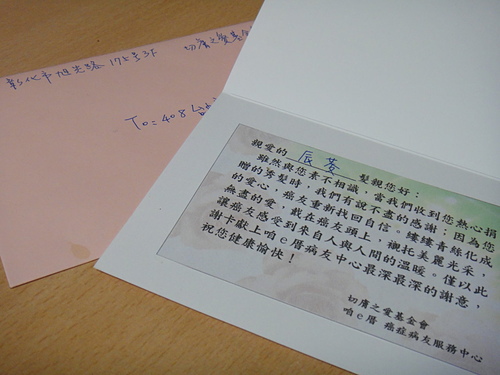 彰化市旭光路175號3F 切膚之愛基金會
To:408台
親愛的 辰蓉 髮親您好:
雖然與您素不相識,當我們收到您熱心捐
贈的秀髮時,我們有說不盡的感謝;因為您
的愛心,癌友重新找回自信。縷縷青絲化成
無盡的愛,載在癌友頭上,襯托美麗光采,
讓癌友感受到來自人與人間的溫暖。僅以此
謝卡獻上咱e厝病友中心最深最深的謝意,
祝您健康愉快!
切膚之愛基金會
咱e厝 癌症病友服務中心